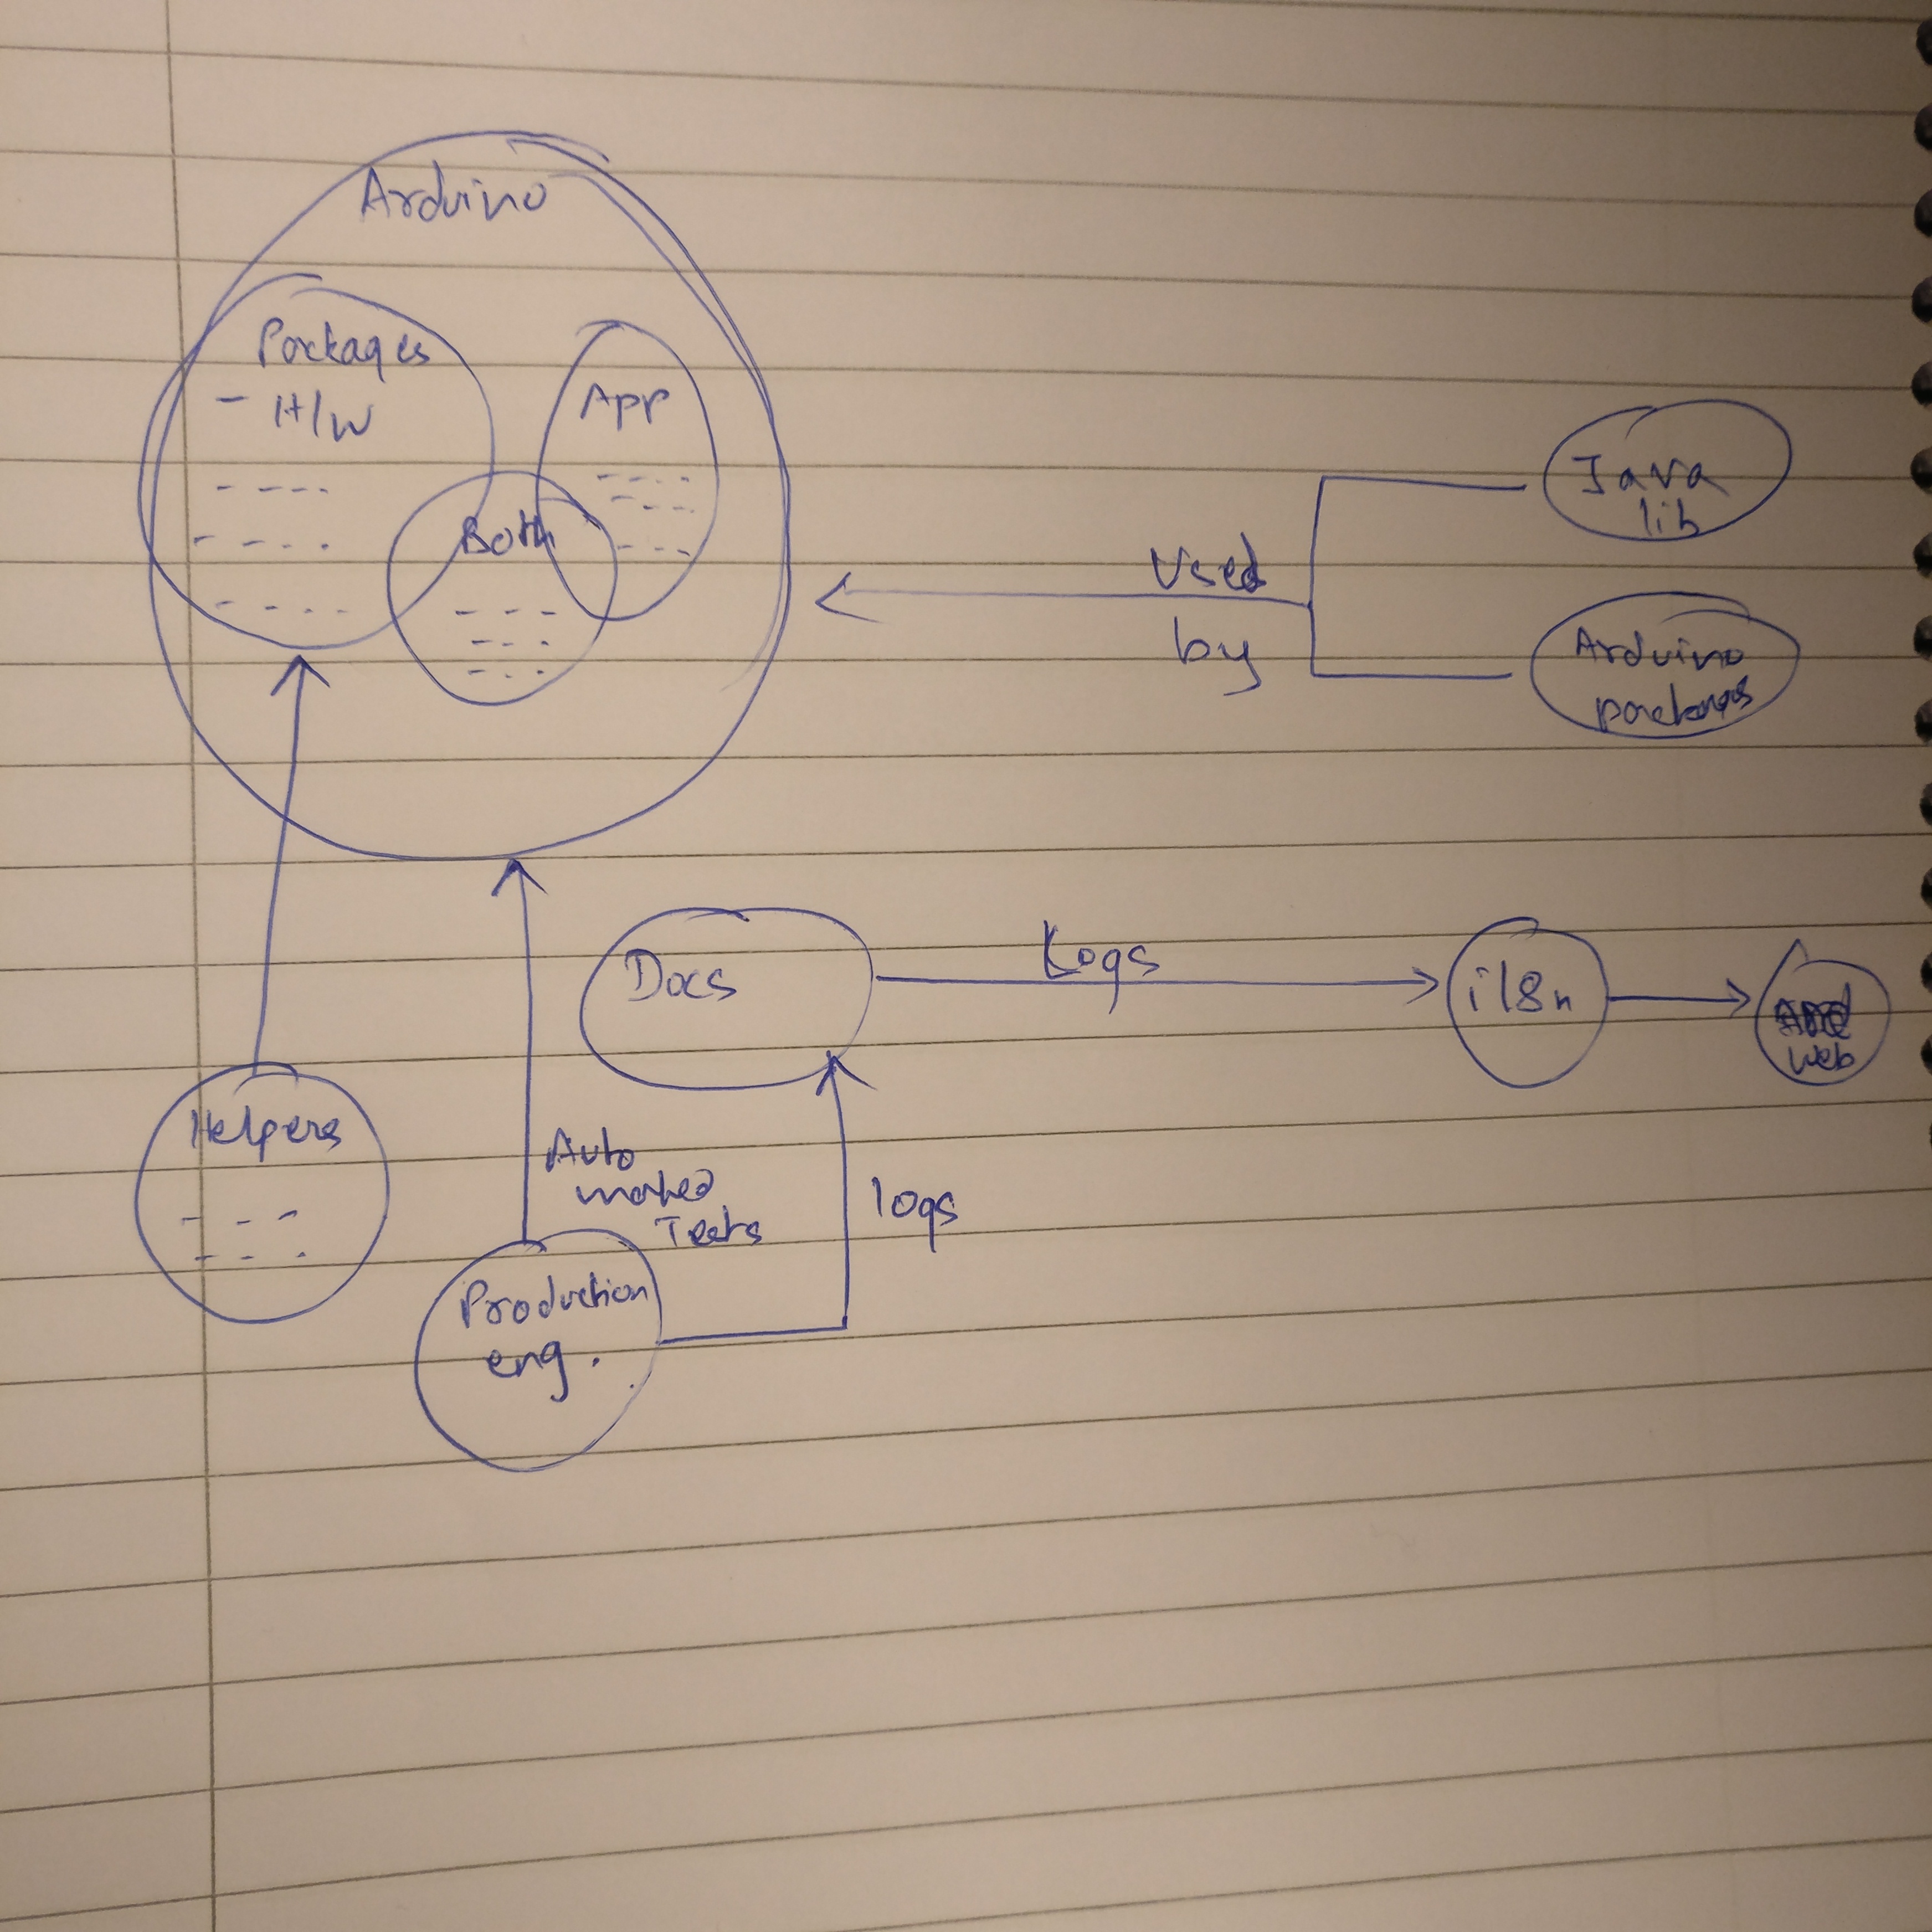 Arduino
Packages
- H/W
App
Both
Used
by
Java
lib
Arduino
packages
Docs
Logs
i18n
web
Helpers
Auto
mated
Tests
logs
Production
eng.